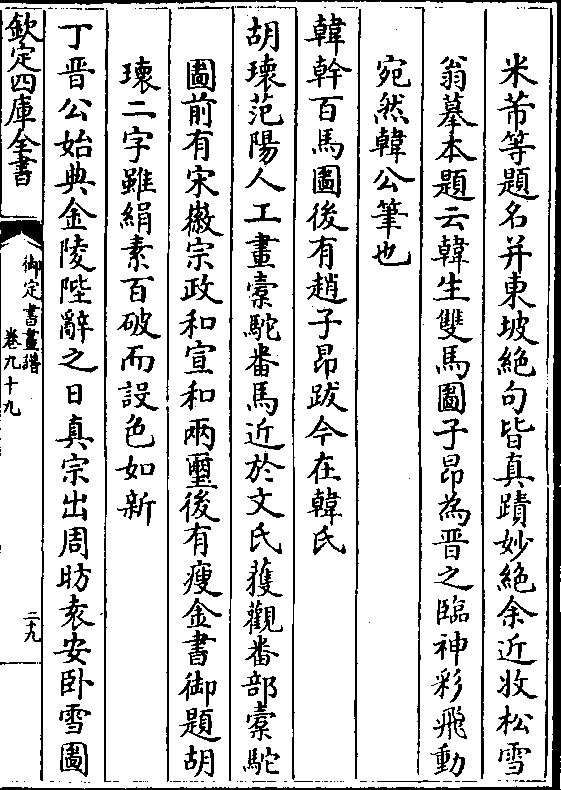 米芾等題名并東坡絶句皆真蹟妙絶余近收松雪
翁摹本題云韓生雙馬圖子昂為晋之臨神彩飛動
宛然韓公筆也
韓幹百馬圖後有趙子昂跋今在韓氏
胡瓌范陽人工畫槖駝番馬近於文氏獲觀番部槖駝
圖前有宋徽宗政和宣和兩璽後有瘦金書御題胡
瓌二字雖絹素百破而設色如新
丁晋公始典金陵陛辭之日真宗出周昉袁安卧雪圖
欽定四庫全書
御定書畫譜
卷九十九
二十九